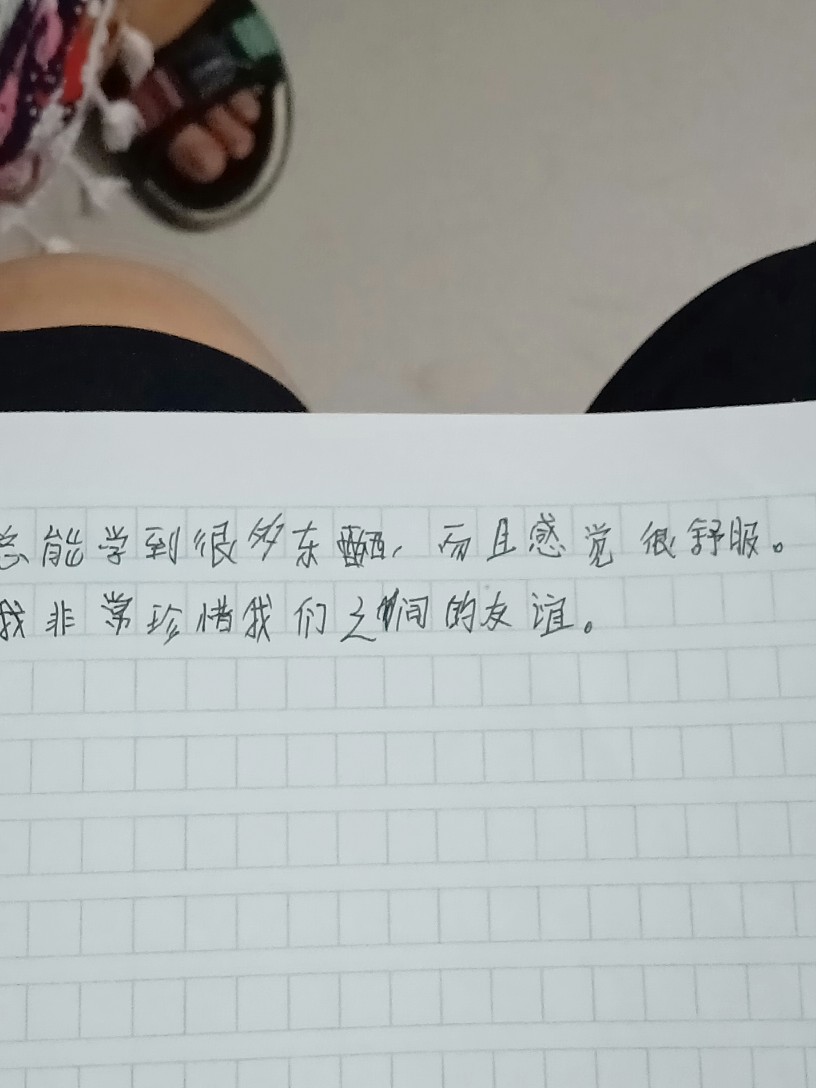 总能学到很多东西，而且感觉很舒服。
我非常珍惜我们之间的友谊。